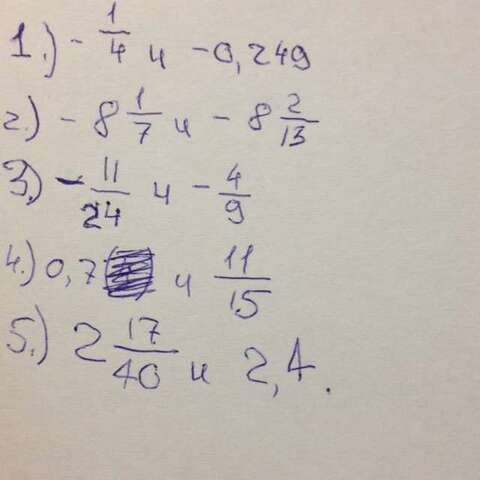 1.) - 1/4 и -0,249
2.) - 8 1/7 и - 8 2/13
3.) - 11/24 и - 4/9
4.) 0,7 и 11/15
5.) 2 17/40 и 2,4.